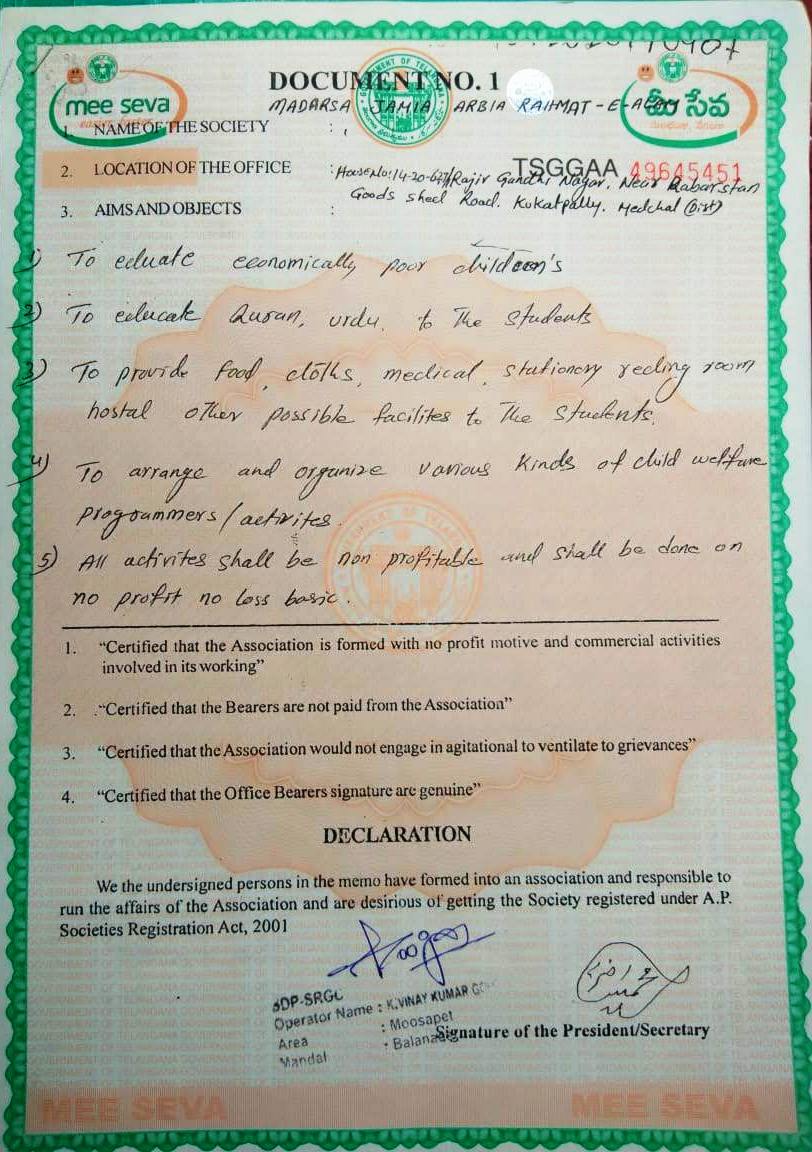 mee seva
DOCUMENT NO. 1
మీ సేవ
MADARSA JAMIA ARBIA RAHMAT-E-ALAM
1. NAME OF THE SOCIETY :
2. LOCATION OF THE OFFICE :
TSGGAA 49645451
House No: 14-20-677/Rajiv Gandhi Nagar, Near Kabarstan
Goods shed Road. Kukatpally. Medchal (Dist)
3. AIMS AND OBJECTS :
1) To eduate economically poor children's
2) To educate Quran, urdu, to The students
3) To provide food, cloths, medical, stationory reding room
hostal other possible facilites to The students.
4) To arrange and organize various kinds of child welfare
programmers/activites.
5) All activites shall be non profitable and shall be done on
no profit no loss basic.
1. “Certified that the Association is formed with no profit motive and commercial activities
involved in its working”
2. .“Certified that the Bearers are not paid from the Association”
3. “Certified that the Association would not engage in agitational to ventilate to grievances”
4. “Certified that the Office Bearers signature are genuine”
DECLARATION
We the undersigned persons in the memo have formed into an association and responsible to
run the affairs of the Association and are desirious of getting the Society registered under A.P.
Societies Registration Act, 2001
SDP-SRGL
Operator Name : K.VINAY KUMAR
Area : Moosapet
Mandal :
Signature of the President/Secretary
MEE SEVA MEE SEVA